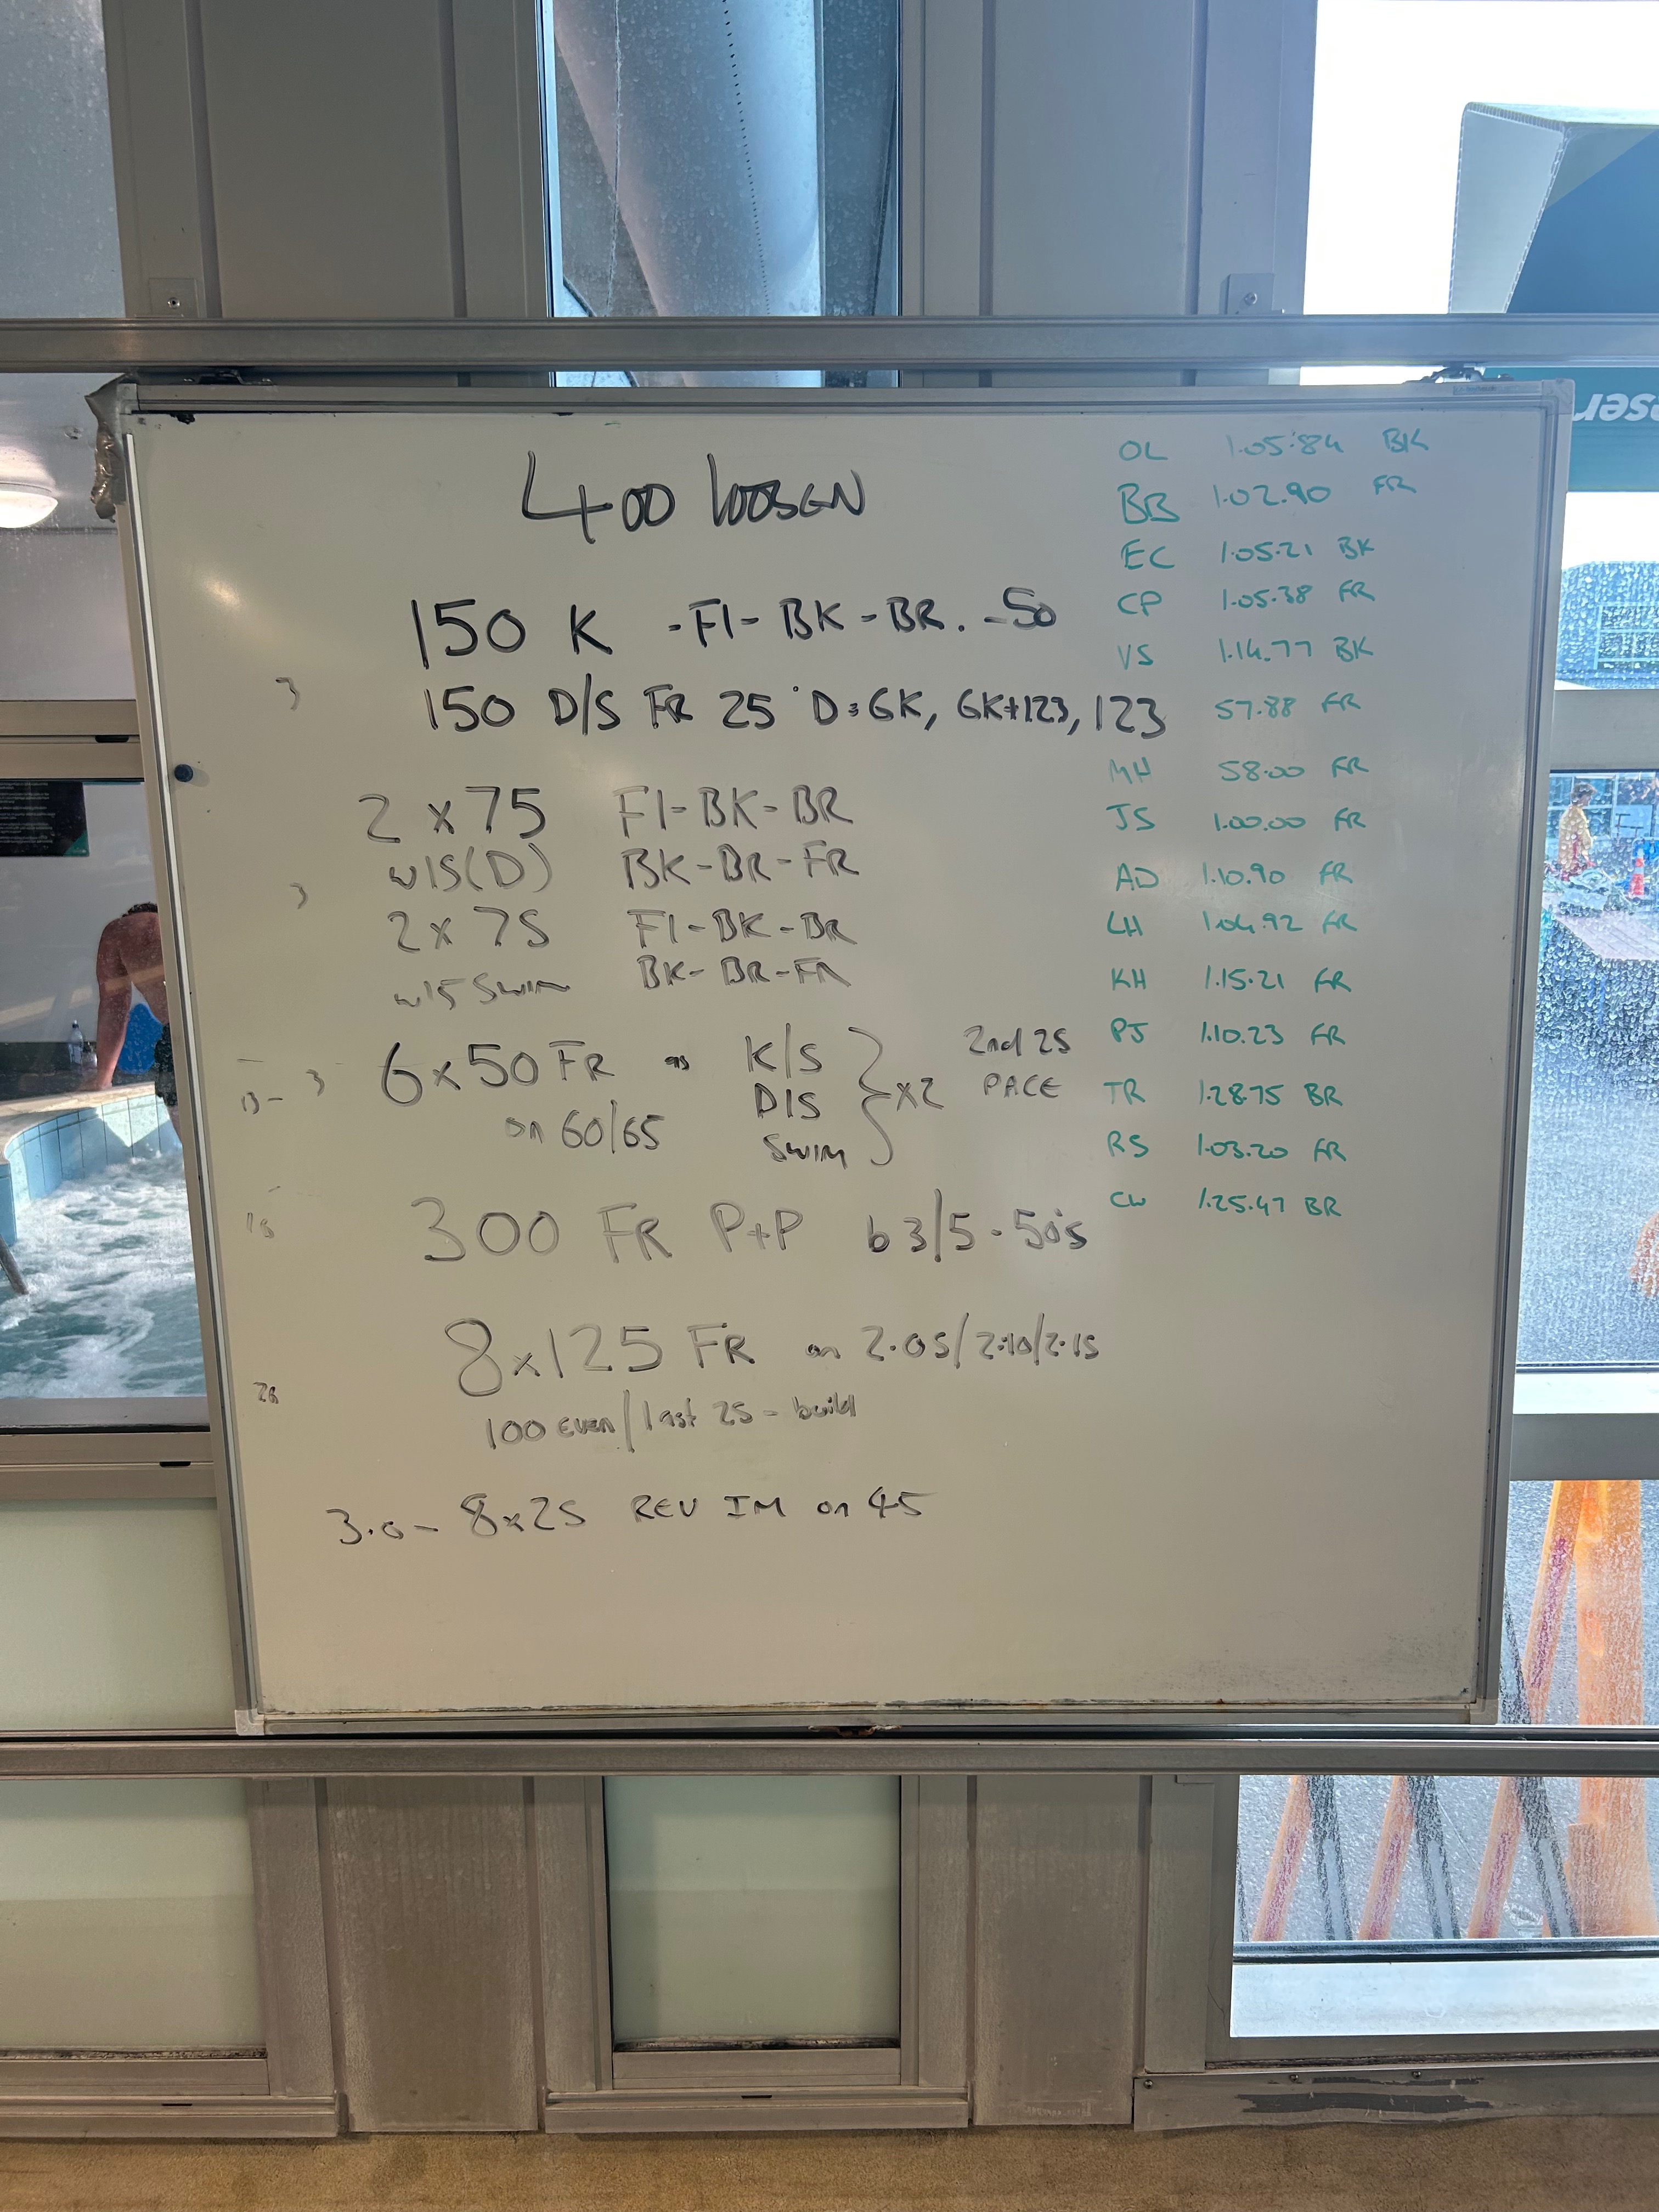 400 LOOSEN
150 K - FI - BK - BR. - 50
3
150 D/S FR 25 D=6K, 6K+123, 123
2 x 75 FI-BK-BR
w15(D) BK-BR-FR
3
2 x 75 FI-BK-BR
w15 SWIM BK-BR-FR
6x50 FR as K/S } x2 2nd 25
13- 3
D/S PACE
on 60/65 SWIM
300 FR P+P b 3/5 - 50's
8x125 FR on 2.05/2.10/2.15
100 EVEN/last 25 - build
3.0 - 8x25 REV IM on 45
OL 1.05.84 BK
BB 1.02.90 FR
EC 1.05.21 BK
CP 1.05.38 FR
VS 1.14.77 BK
57.88 FR
MH 58.00 FR
JS 1.00.00 FR
AD 1.10.90 FR
LH 1.04.92 FR
KH 1.15.21 FR
PJ 1.10.23 FR
TR 1.28.75 BR
RS 1.03.20 FR
CW 1.25.47 BR